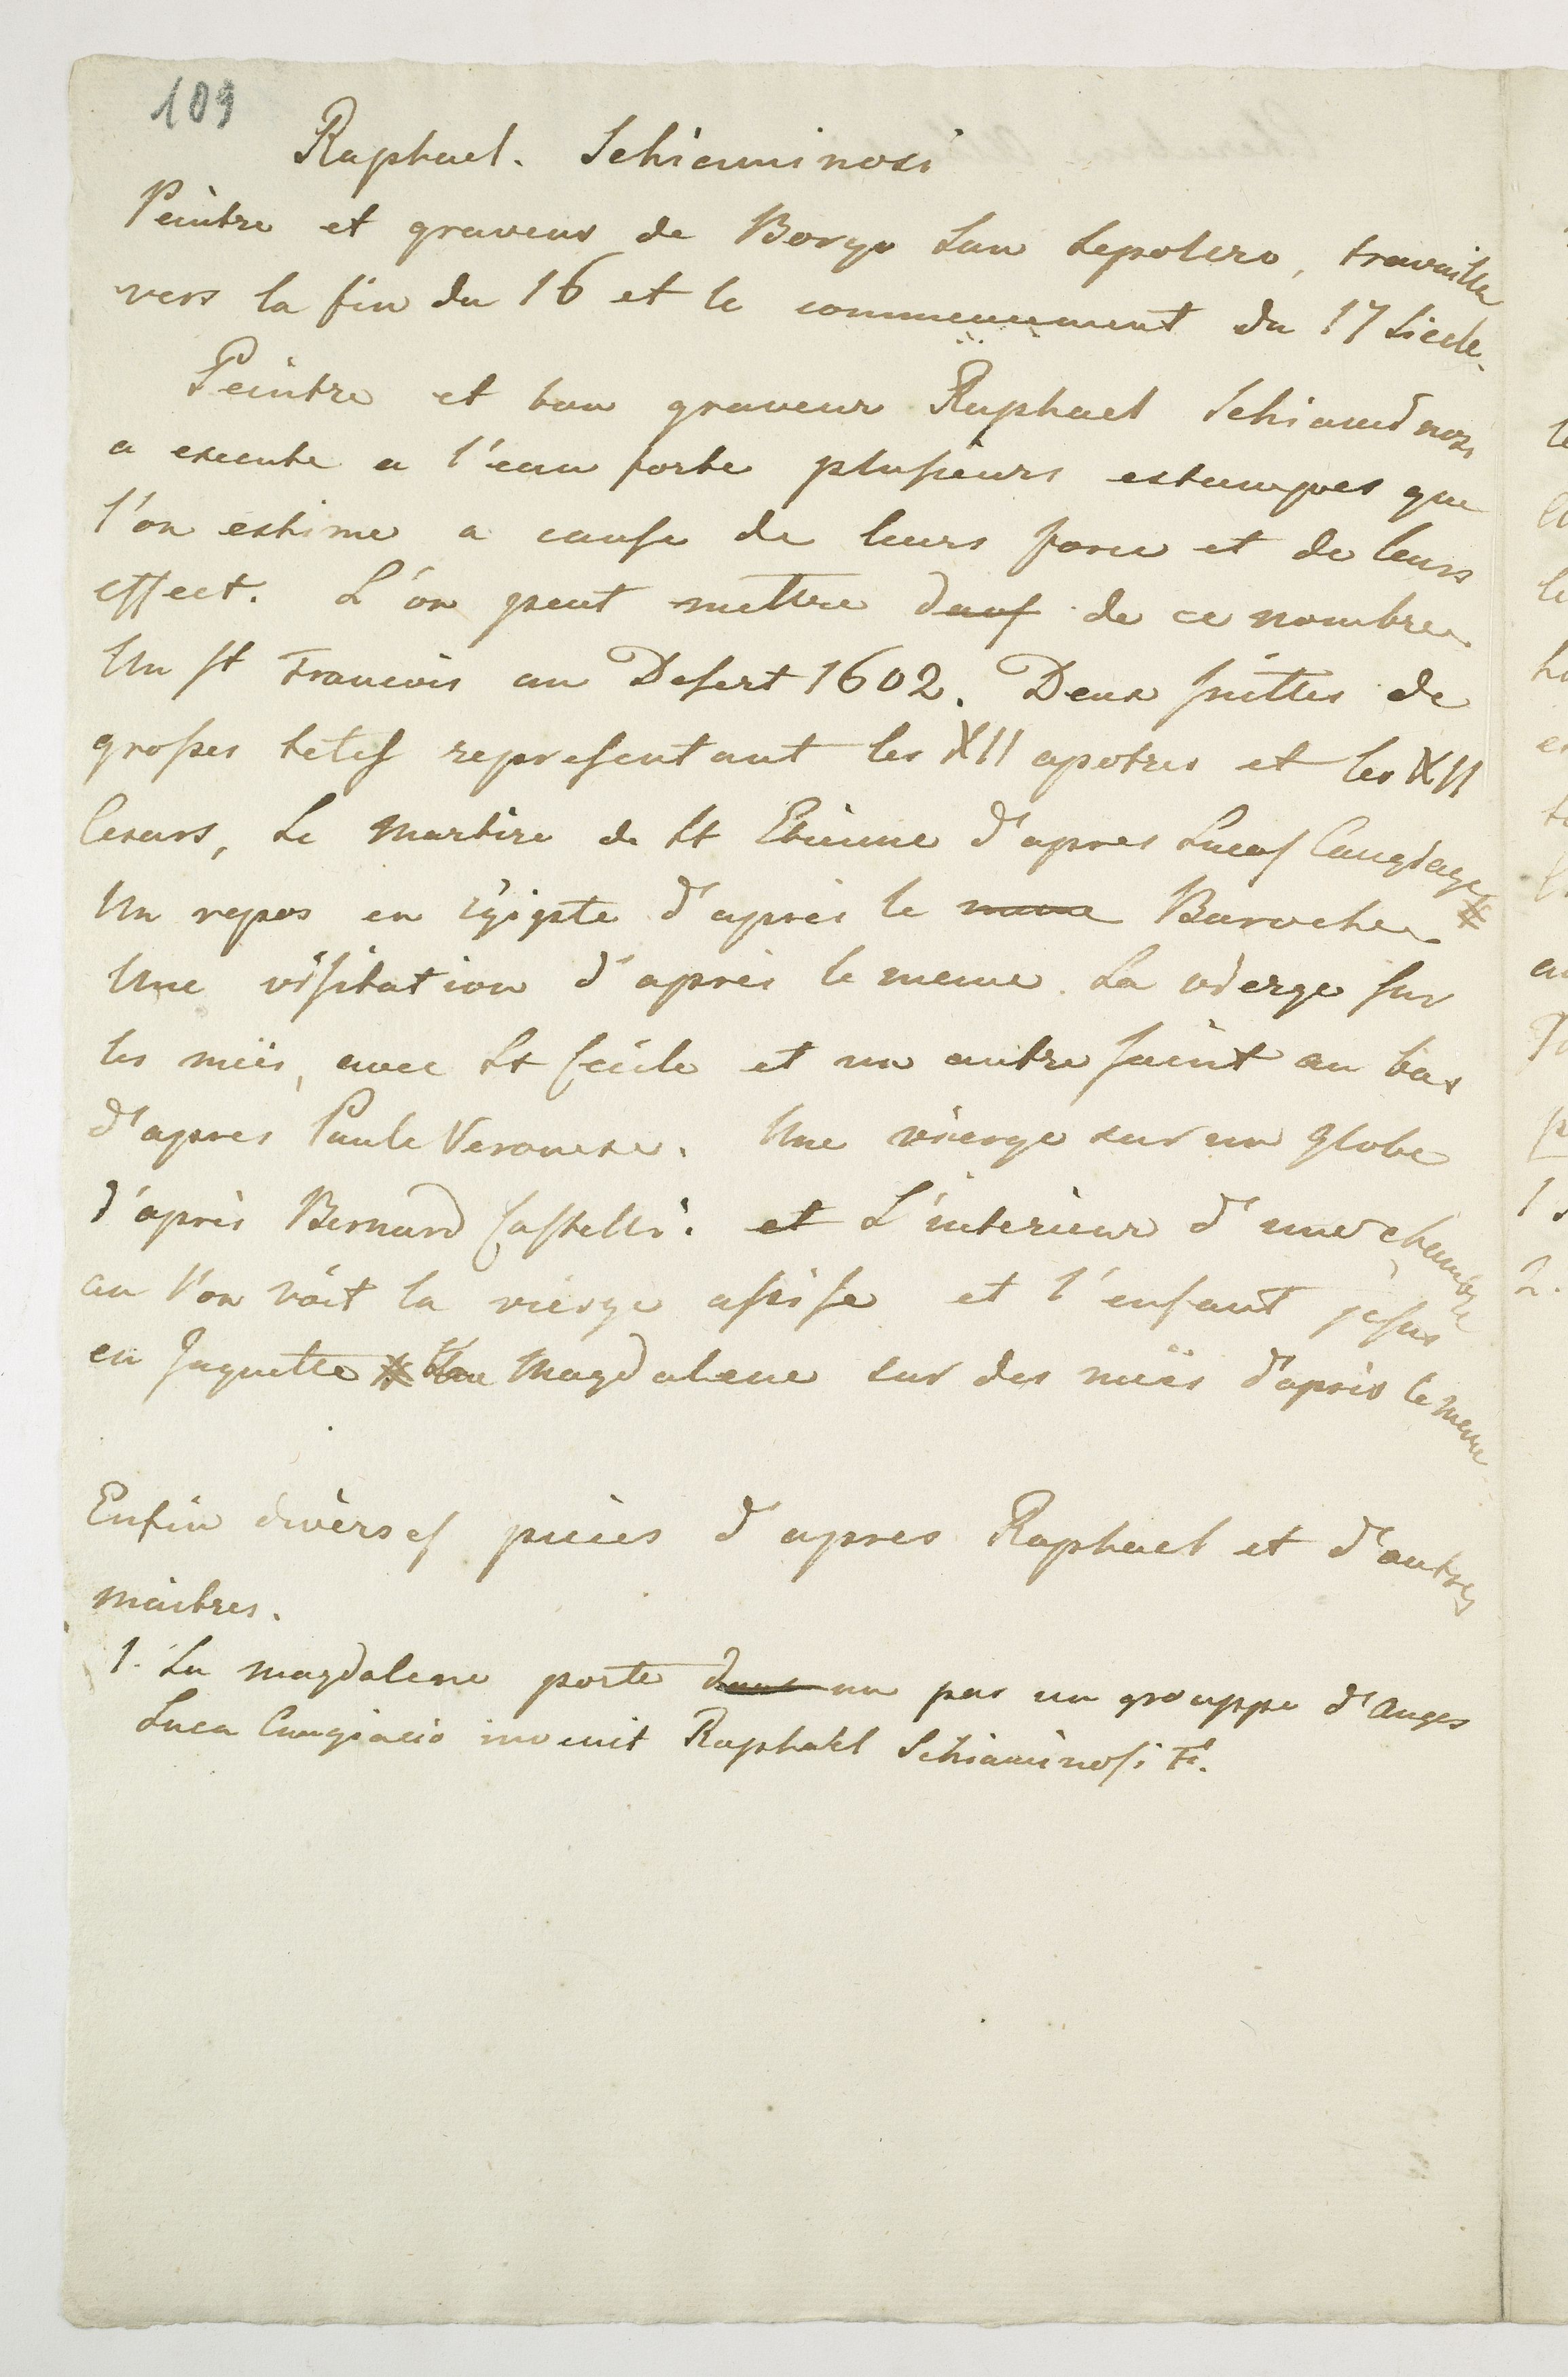 109
Raphael. Schiaminosi
Peintre et graveur de Borgo San Sepolero, travailla
vers la fin du 16 et le commencement du 17 Siecle.
Peintre et bon graveur Raphael Schiaminosi
a execute a l'eau forte plusieurs estampes que
l'on estime a cause de leurs force et de leurs
effect. L'on peut mettre de ce nombre
Un St Francois au Desert 1602. Deux suittes de
grosses tetes representant les XII apotres et les XII
Cesars, Le Martire de St Etienne d'apres Lucas Cangiage
Un repos en Egipte d'après le meme Baroche
Une visitation d'après le meme. La vierge sur
les nuës, avec St Cecile et un autre saint au bas
d'apres Paule Veronese. Une vierge sur un globe
d'après Bernard Castelli. et L'interieur d'une chambre
au l'on voit la vierge assise et l'enfant jesus
en Jaquette # Une Magdalene sur des nuës d'après le meme
Enfin diverses pieces d'apres Raphael et d'autres
maitres.
1. La magdalene porte par un grouppe d'Anges
Luca Cangiacio invenit Raphael Schiaminosi F.